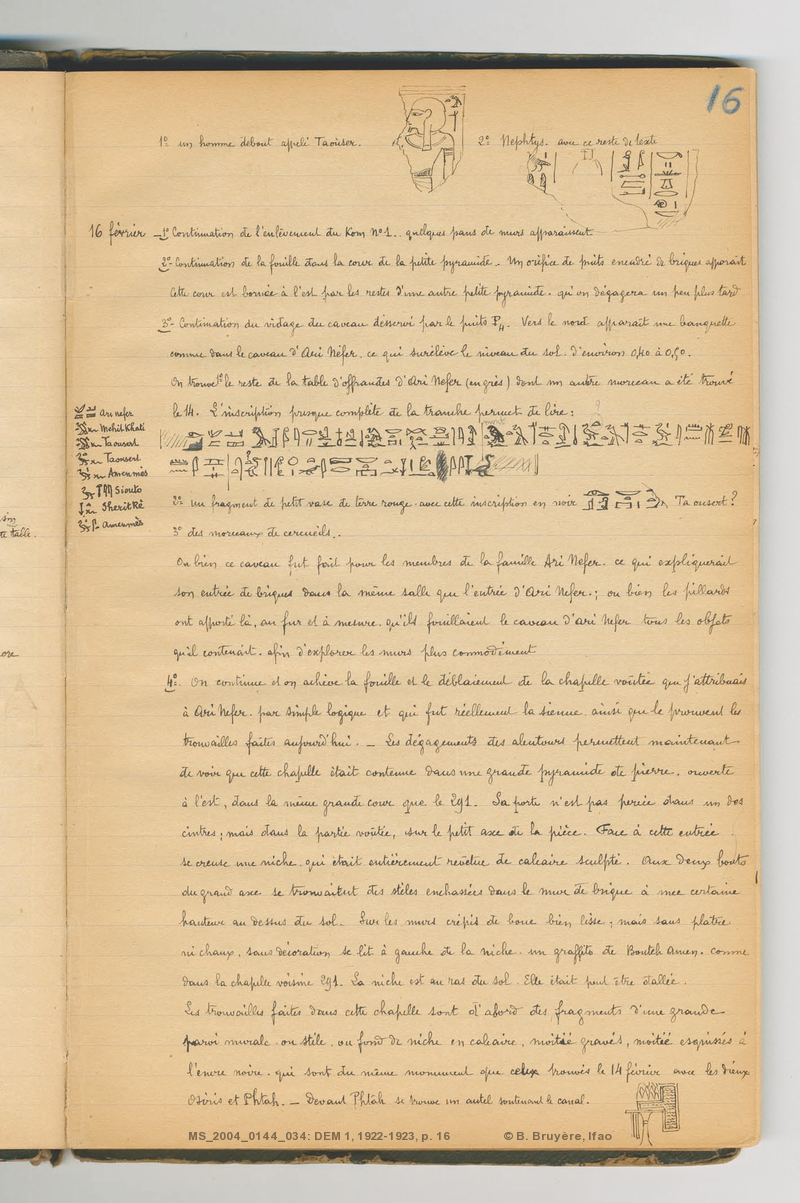 16
1º un homme debout appelé Taouser.
2º Nephtys. avec ce reste de texte
16 février – 1º Continuation de l'enlèvement du Kom Nº 1. quelques pans de murs apparaissent.
2º Continuation de la fouille dans la cour de la petite pyramide. Un orifice de puits encadré de briques apparait
Cette cour est bornée à l'est par les restes d'une autre petite pyramide. qu'on dégagera un peu plus tard
3º Continuation du vidage du caveau désservi par le puits P4. Vers le nord apparait une banquette
comme dans le caveau d'Ari Nefer. ce qui surélève le niveau du sol d'environ 0,40 à 0,50.
On trouve 1º le reste de la table d'offrandes d'Ari Nefer (en grès) dont un autre morceau a été trouvé
le 14. L'inscription presque complète de la tranche permet de lire :
Ari nefer
Mehit Khati
Taousert
Taousert
Amenmès
Siouto
Sherit Rê
Amenmès
2º un fragment de petit vase de terre rouge avec cette inscription en noir Ta ousert ?
3º des morceaux de cercueils..
Ou bien ce caveau fut fait pour les membres de la famille Ari Nefer. ce qui expliquerait
son entrée de briques dans la même salle que l'entrée d'Ari Nefer. ; ou bien les pillards
ont apporté là, au fur et à mesure. qu'ils fouillaient le caveau d'Ari Nefer tous les objets
qu'il contenait. afin d'explorer les murs plus commodément
4º. On continue et on achève la fouille et le déblaiement de la chapelle voûtée que j'attribuais
à Ari Nefer. par simple logique et qui fut réellement la sienne ainsi que le prouvent les
trouvailles faites aujourd'hui. – Les dégagements des alentours permettent maintenant
de voir que cette chapelle était contenue dans une grande pyramide de pierre. ouverte
à l'est, dans la même grande cour que le 291. Sa porte n'est pas percée dans un des
cintres ; mais dans la partie voûtée, sur le petit axe de la pièce. Face à cette entrée
se creuse une niche. qui était entièrement revêtue de calcaire sculpté. Aux deux bouts
du grand axe se trouvaient des stèles enchassées dans le mur de brique à une certaine
hauteur au dessus du sol. Sur les murs crépis de boue bien lisse ; mais sans plâtre
ni chaux, sans décoration se lit à gauche de la niche. un graffito de Bouteh Amen. comme
dans la chapelle voisine 291. La niche est au ras du sol. Elle était peut être dallée.
Les trouvailles faites dans cette chapelle sont d'abord des fragments d'une grande
paroi murale. ou stèle. ou fond de niche en calcaire, moitié gravés, moitié esquissés à
l'encre noire. qui sont du même monument que ceux trouvés le 14 février avec les dieux
Osiris et Phtah. – Devant Phtah se trouve un autel soutenant le canal.
MS_2004_0144_034: DEM 1, 1922-1923, p. 16 © B. Bruyère, Ifao